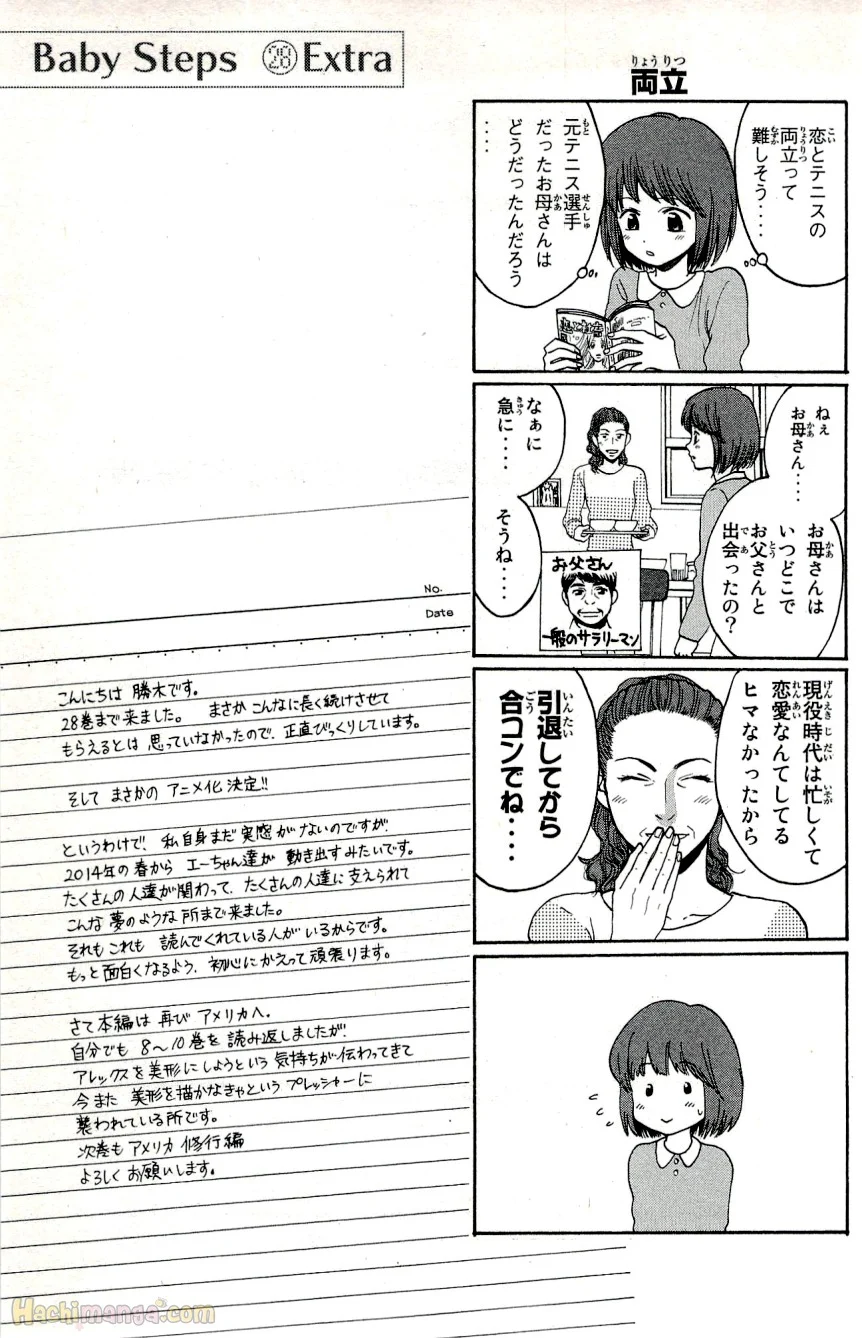 Baby Steps ㉘ Extra
両立
りょうりつ
恋とテニスの
こい
両立って
りょうりつ
難しそう‥‥
むずか
元テニス選手
もと せんしゅ
だったお母さんは
かあ
どうだったんだろう
‥‥
ねぇ
お母さん‥‥
かあ
お母さんは
かあ
いつどこで
お父さんと
とう
出会ったの?
であ
なぁに
急に‥‥
きゅう
そうね‥‥
お父さん
一般のサラリーマン
現役時代は忙しくて
げんえきじだい いそが
恋愛なんてしてる
れんあい
ヒマなかったから
引退してから
いんたい
合コンでね‥‥
ごう
No.
Date
こんにちは 勝木です。
28巻まで来ました。 まさか こんなに長く続けさせて
もらえるとは 思っていなかったので、正直びっくりしています。
そして まさかの アニメ化 決定!!
というわけで、私自身まだ実感がないのですが、
2014年の春から エーちゃん達が 動き出すみたいです。
たくさんの人達が関わって、たくさんの人達に支えられて
こんな 夢のような 所まで来ました。
それもこれも 読んでくれている人がいるからです。
もっと面白くなるよう、初心にかえって頑張ります。
さて本編は 再び アメリカへ。
自分でも 8～10巻を 読み返しましたが、
アレックスを美形にしようという 気持ちが伝わってきて
今また 美形を描かなきゃという プレッシャーに
襲われている所です。
次巻も アメリカ 修行編
よろしく お願いします。
Hachimanga.com